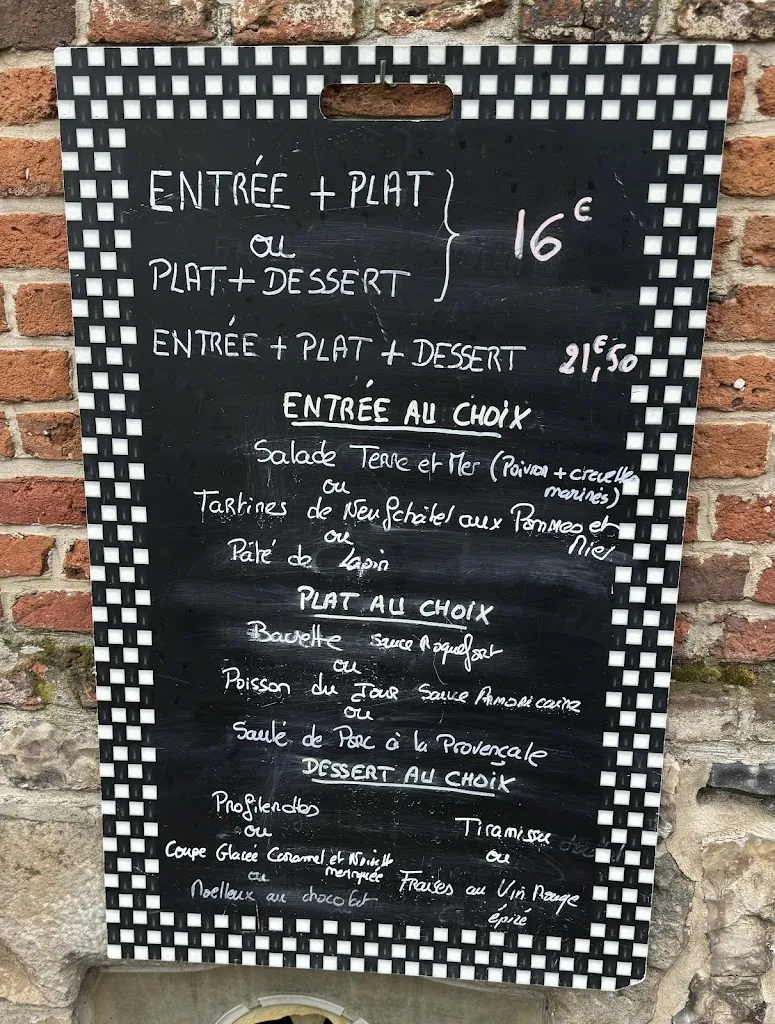 ENTRÉE + PLAT
ou
PLAT + DESSERT
16€
ENTRÉE + PLAT + DESSERT 21€,50
ENTRÉE AU CHOIX
Salade Terre et Mer (Poivron + crevettes
marinés)
ou
Tartines de Neufchâtel aux Pommes et
Miel
ou
Pâté de Lapin
PLAT AU CHOIX
Bavette Sauce Roquefort
ou
Poisson du Jour Sauce Armoricaine
ou
Sauté de Porc à la Provençale
DESSERT AU CHOIX
Profiteroles
ou
Coupe Glacée Caramel et Noisette
meringuée
ou
Moelleux au chocolat
Tiramissu
ou
Fraises au Vin Rouge
épicé